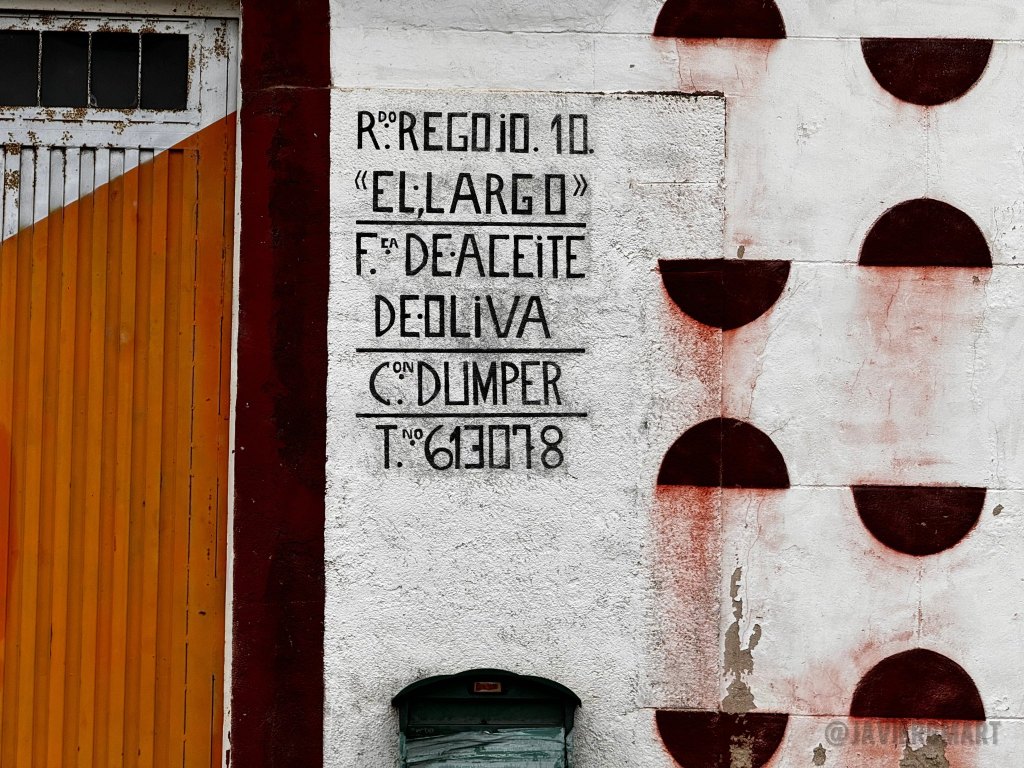 R.DO REGOJO. 10.
"EL,LARGO"
F.CA DE·ACEITE
DE·OLIVA
C.ON DUMPER
T.NO 613078